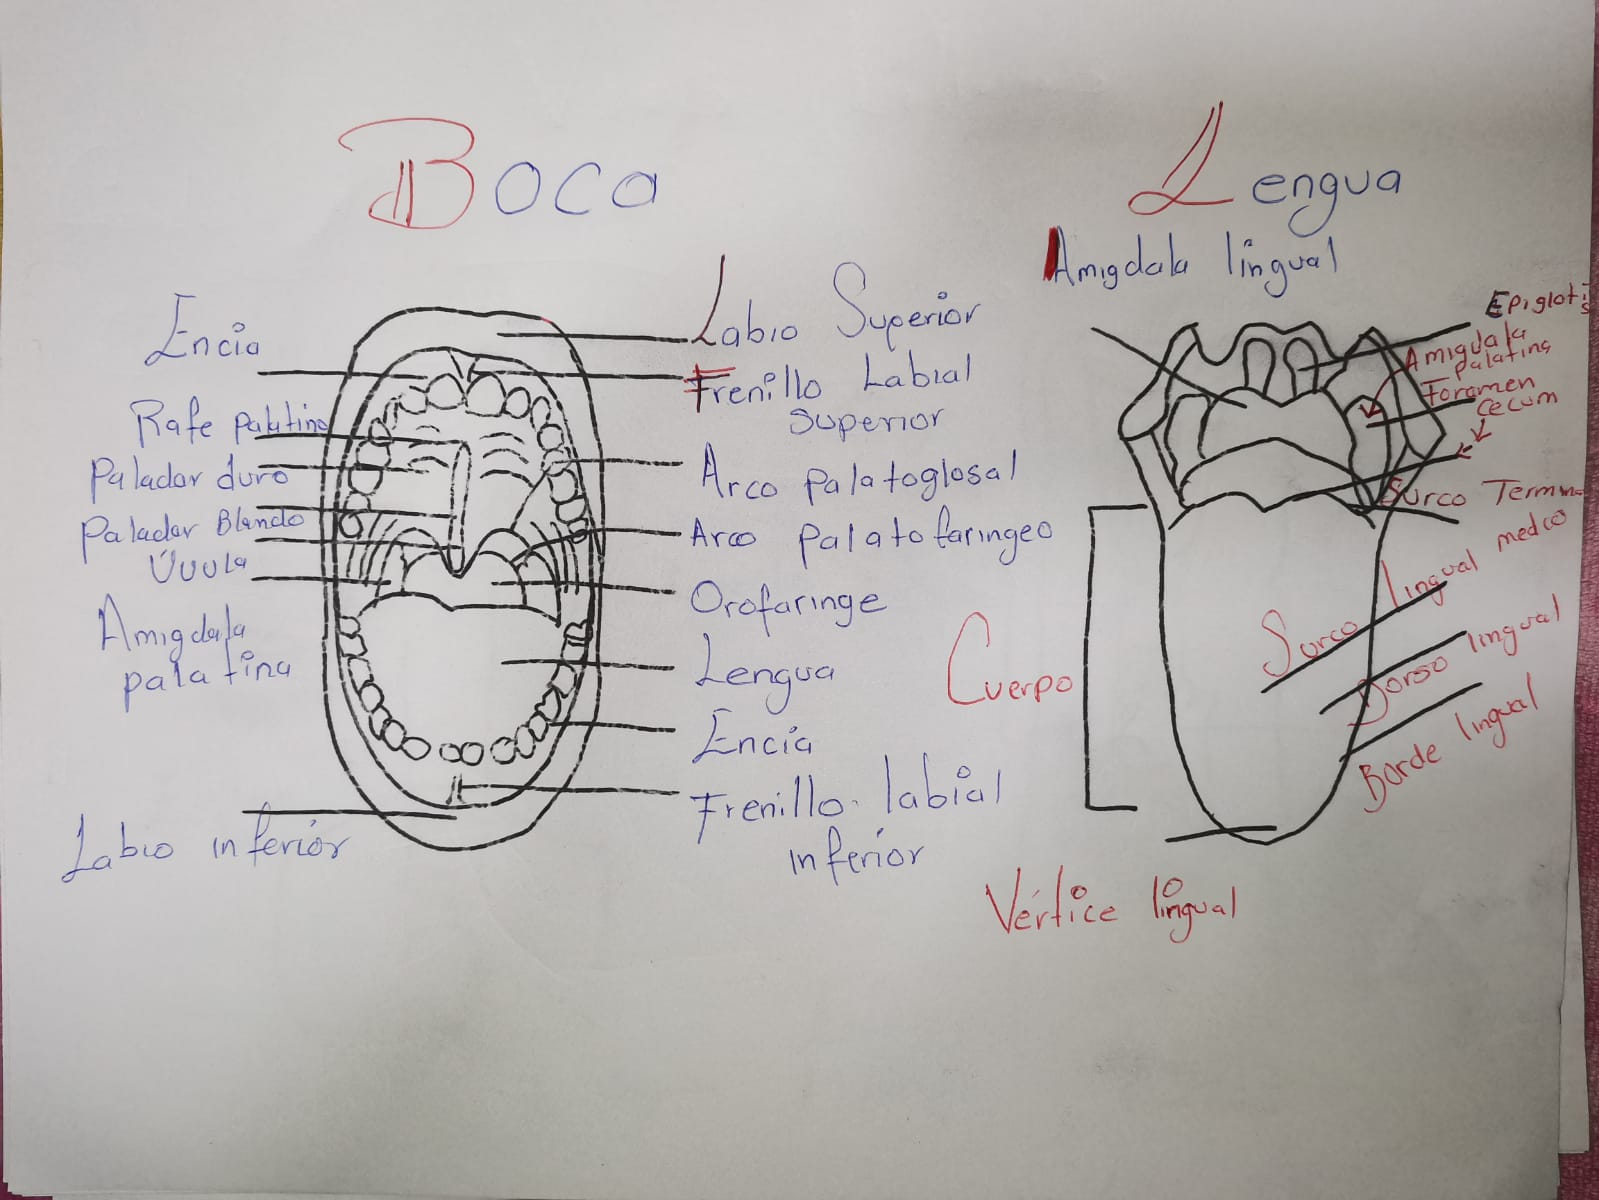 Boca
Encia
Rafe palatino
Palador duro
Palador Blando
Úvula
Amigdala
palatina
Labio inferiór
Labio Superior
Frenillo Labial
superior
Arco palatoglosal
Arco palatofaringeo
Orofaringe
Lengua
Encía
Frenillo labial
inferior
Lengua
Amigdala lingual
Epiglotis
Amigdala
palatina
Foramen
cecum
Surco Termin
Surco lingual medio
Dorso lingual
Borde lingual
Cuerpo
Vértice lingual